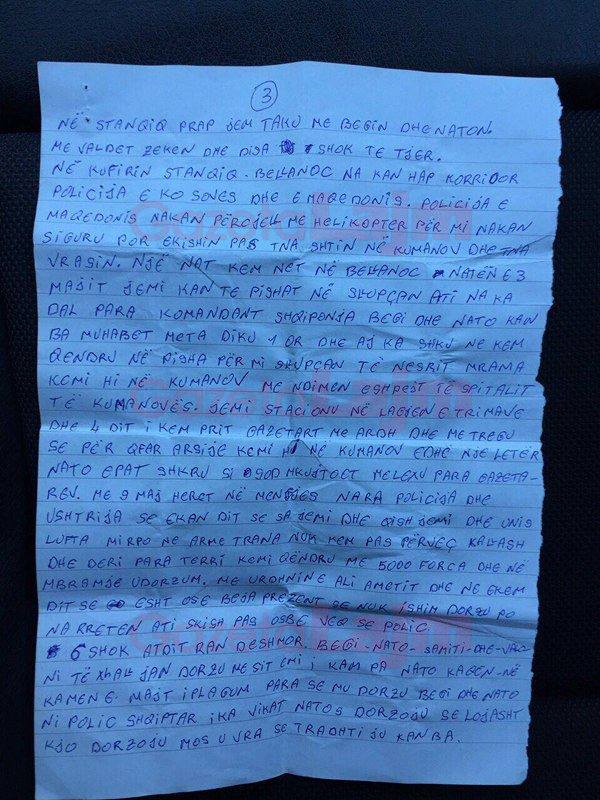 3
NË STANQIQ PRAP JEM TAKU ME BEGIN DHE NATON.
ME VALDET ZEKEN DHE DISA SHOK TE TJER.
NË KUFIRIN STANQIQ - BELLANOC NA KAN HAP KORRIDOR
POLICIJA E KOSOVES DHE E MAQEDONIS. POLICIJA E
MAQEDONIS NAKAN PËRCJELL ME HELIKOPTER PËR MI NAKAN
SIGURU POR EKISHIN PAS TNA SHTIN NË KUMANOV DHE TNA
VRASIN. NJË NAT KEM NET NË BELLANOC NATËN E 3
MAJIT JEMI KAN TE PISHAT NË SLLUPÇAN ATI NA KA
DAL PARA KOMANDANT SHQIPONJA BEGI DHE NATO KAN
BA MUHABET META DIKU 1 OR DHE AJ KA SHKU NE KEM
QENDRU NË PISHA PËR MI SLLUPÇAN TË NESRIT MRAMA
KEMI HI NË KUMANOV ME NDIMEN ESHPEST TE SPITALIT
TË KUMANOVËS. JEMI STACIONU NË LAGJEN E TRIMAVE
DHE 4 DIT I KEM PRIT GAZETART ME ARDH DHE ME TREGU
SE PËR QFAR ARSIJE KEMI HI NË KUMANOV EDHE NJE LETËR
NATO EPAT SHKRU SI 900 MKUJTOCT MELEXU PARA GAZETA-
REV. ME 9 MAJ HERET NË MENGJES NA RA POLICIJA DHE
USHTRIJA SE EKAN DIT SE SA JEMI DHE QISH JEMI DHE UNIS
LUFTA MIRPO NE ARME TRANA NUK KEM PAS PËRVEÇ KALLASH
DHE DERI PARA TERRI KEMI QËNDRU ME 5000 FORCA DHE NË
MBRAMJE UDORZUM. ME URDHNIN E ALI AMETIT DHE NE EKEM
DIT SE ESHT OSE BEJA PREZENT SE NUK ISHIM DORZU PO
NA RRETEN ATI SKISH PAS OSBE VEQ SE POLIC.
6 SHOK ATDIT RAN DESHMOR. BEGI-NATO-SAMITI-DHE
NI TË XHALL JAN DORZU ME SIT EMI I KAM PA NATO KA
KAMEN E MAJT I PLAGUM PARA SE MU DORZU BEGI DHE NATO
NI POLIC SHQIPTAR I KA VIKAT NATOS DORZOJU SE LOJASHT
KJO DORZOJU MOS U VRA SE TRADHTI JU KAN BA.